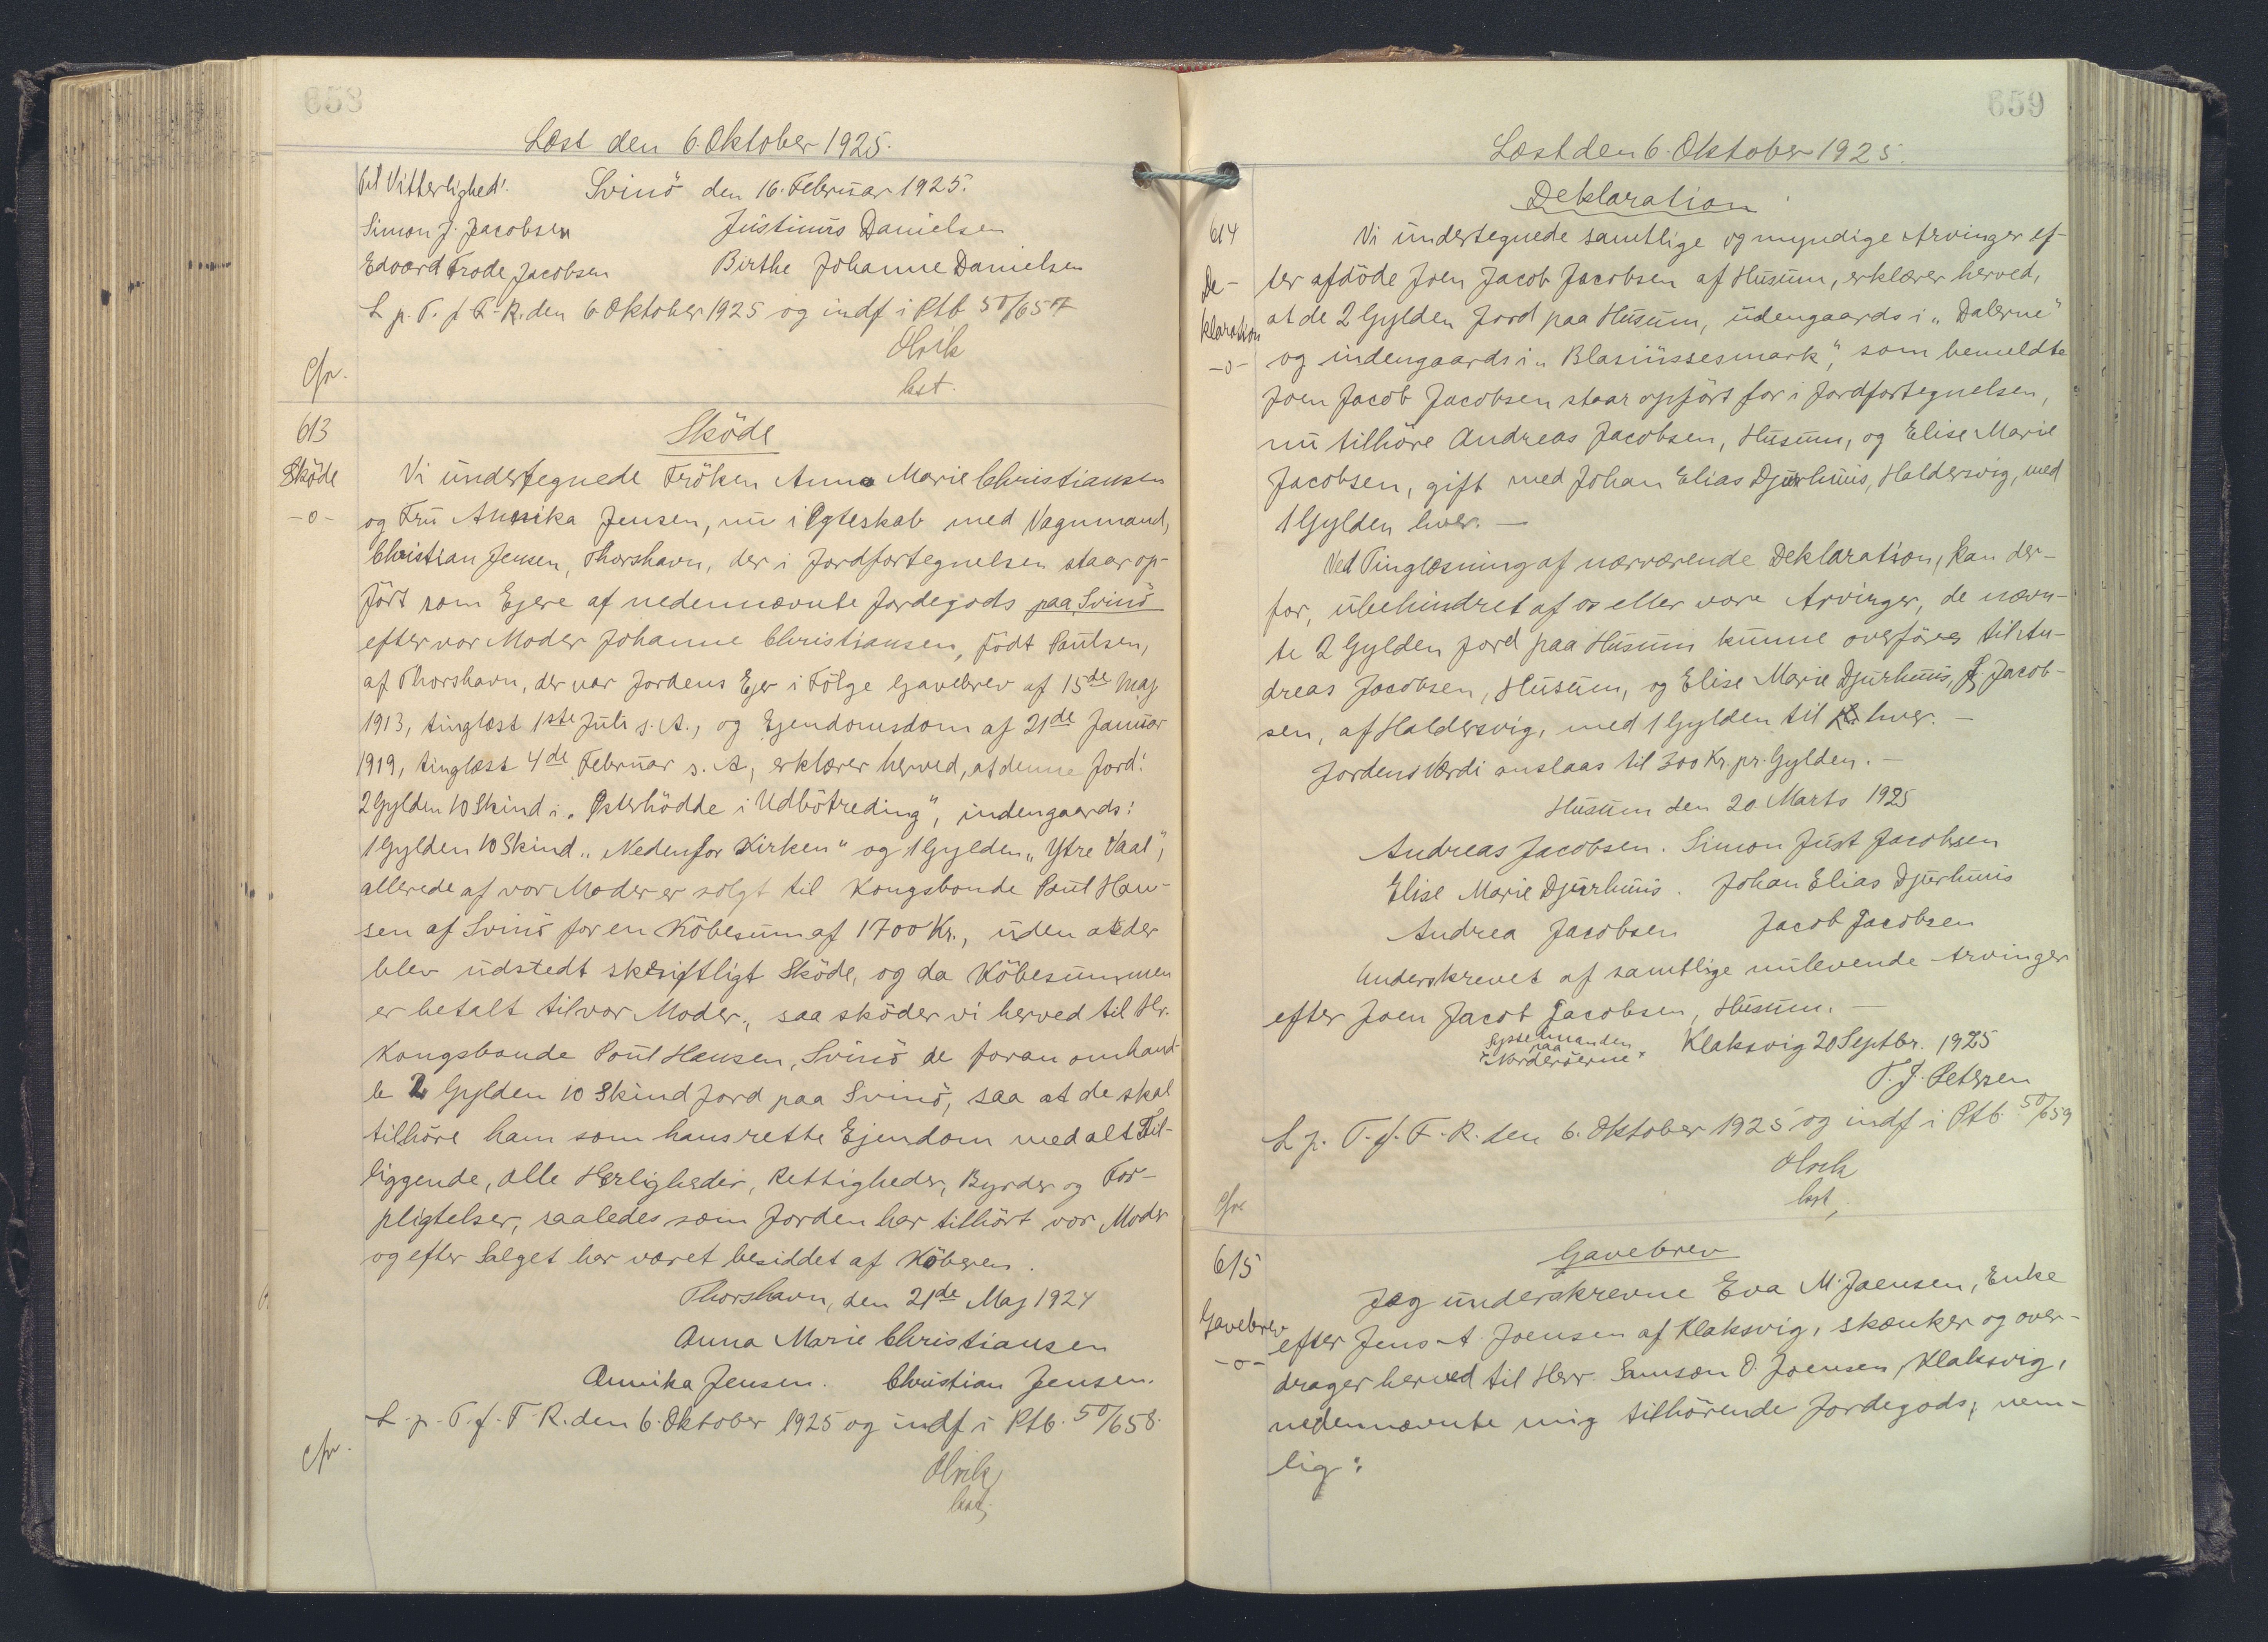 658
Læst den 6. Oktober 1925.
Til Vitterlighed: Svinö den 16. Februar 1925.
Simon J. Jacobsen Justinus Danielsen
Edvard Frode Jacobsen Birthe Johanne Danielsen
L. p. T. f. F. R. den 6 Oktober 1925 og indf i Ptb 50/657
Olrik
kst.
cfr.
613
Sköde
-o-
Sköde
Vi undertegnede Fröken Anna Marie Christiansen
og Fru Annika Jensen, nu i Ægteskab med Vognmand,
Christian Jensen, Thorshavn, der i Jordfortegnelsen staar op-
fört som Ejere af nedennævnte Jordegods paa Svinö
efter vor Moder Johanne Christiansen, født Poulsen,
af Thorshavn, der var Jordens Ejer i Fölge Gavebrev af 15de Maj
1913, tinglæst 1ste Juli s. A., og Ejendomsdom af 21de Januar
1919, tinglæst 4de Februar s. A., erklærer herved, at denne Jord:
2 Gylden 10 Skind i „Østerhödde i Udbötreding", indengaards:
1 Gylden 10 Skind „Nedenfor Kirken" og 1 Gylden „Ytre Vaal",
allerede af vor Moder er solgt til Kongsbonde Poul Han-
sen af Svinö for en Köbesum af 1700 Kr., uden at der
blev udstedt skriftligt Sköde, og da Köbesummen
er betalt til vor Moder, saa sköder vi herved til Hr.
Kongsbonde Poul Hansen, Svinö de foran omhand-
le 2 Gylden 10 Skind Jord paa Svinö, saa at de skal
tilhöre ham som hans rette Ejendom med alt Til-
liggende, alle Herligheder, Rettigheder, Byrder og For-
pligtelser, saaledes som Jorden har tilhört vor Moder
og efter Salget har været besiddet af Köberen.
Thorshavn, den 21de Maj 1924
Anna Marie Christiansen
Annika Jensen. Christian Jensen.
L. p. T. f. F. R. den 6. Oktober 1925 og indf i Ptb. 50/658.
Olrik
kst.
cfr.
659
Læst den 6. Oktober 1925.
Deklaration
614
De-
klaration
-o-
Vi undertegnede samtlige og myndige Arvinger ef-
ter afdöde Joen Jacob Jacobsen af Husum, erklærer herved,
at de 2 Gylden Jord paa Husum, udengaards i „Dalerne"
og indengaards i „Blasiussesmark", som bemeldte
Joen Jacob Jacobsen staar opfört for i Jordfortegnelsen,
nu tilhöre Andreas Jacobsen, Husum, og Elise Marie
Jacobsen, gift med Johan Elias Djurhuus, Haldersvig, med
1 Gylden hver. —
Ved Tinglæsning af nærværende Deklaration, kan der-
for, ubehindret af os eller vore Arvinger, de nævn-
te 2 Gylden Jord paa Husum kunne overföres til An-
dreas Jacobsen, Husum, og Elise Marie Djurhuus, f. Jacob-
sen, af Haldersvig, med 1 Gylden til hver. —
Jordens Værdi anslaas til 300 Kr. pr. Gylden. —
Husum den 20 Marts 1925
Andreas Jacobsen. Simon Just Jacobsen
Elise Marie Djurhuus. Johan Elias Djurhuus
Andrea Jacobsen Jacob Jacobsen
Underskrevet af samtlige nulevende Arvinger
efter Joen Jacob Jacobsen, Husum. —
Sysselmanden
paa
Norderöerne. Klaksvig 20 Septbr. 1925
T. J. Petersen
L. p. T. f. F. R. den 6. Oktober 1925 og indf i Ptb. 50/659
Olrik
kst,
cfr
615
Gavebrev
-o-
Gavebrev
Jeg underskrevne Eva M. Joensen, Enke
efter Jens A. Joensen af Klaksvig, skænker og over-
drager herved til Herr. Samson O. Joensen, Klaksvig,
nedennævnte mig tilhörende Jordegods, nem-
lig: